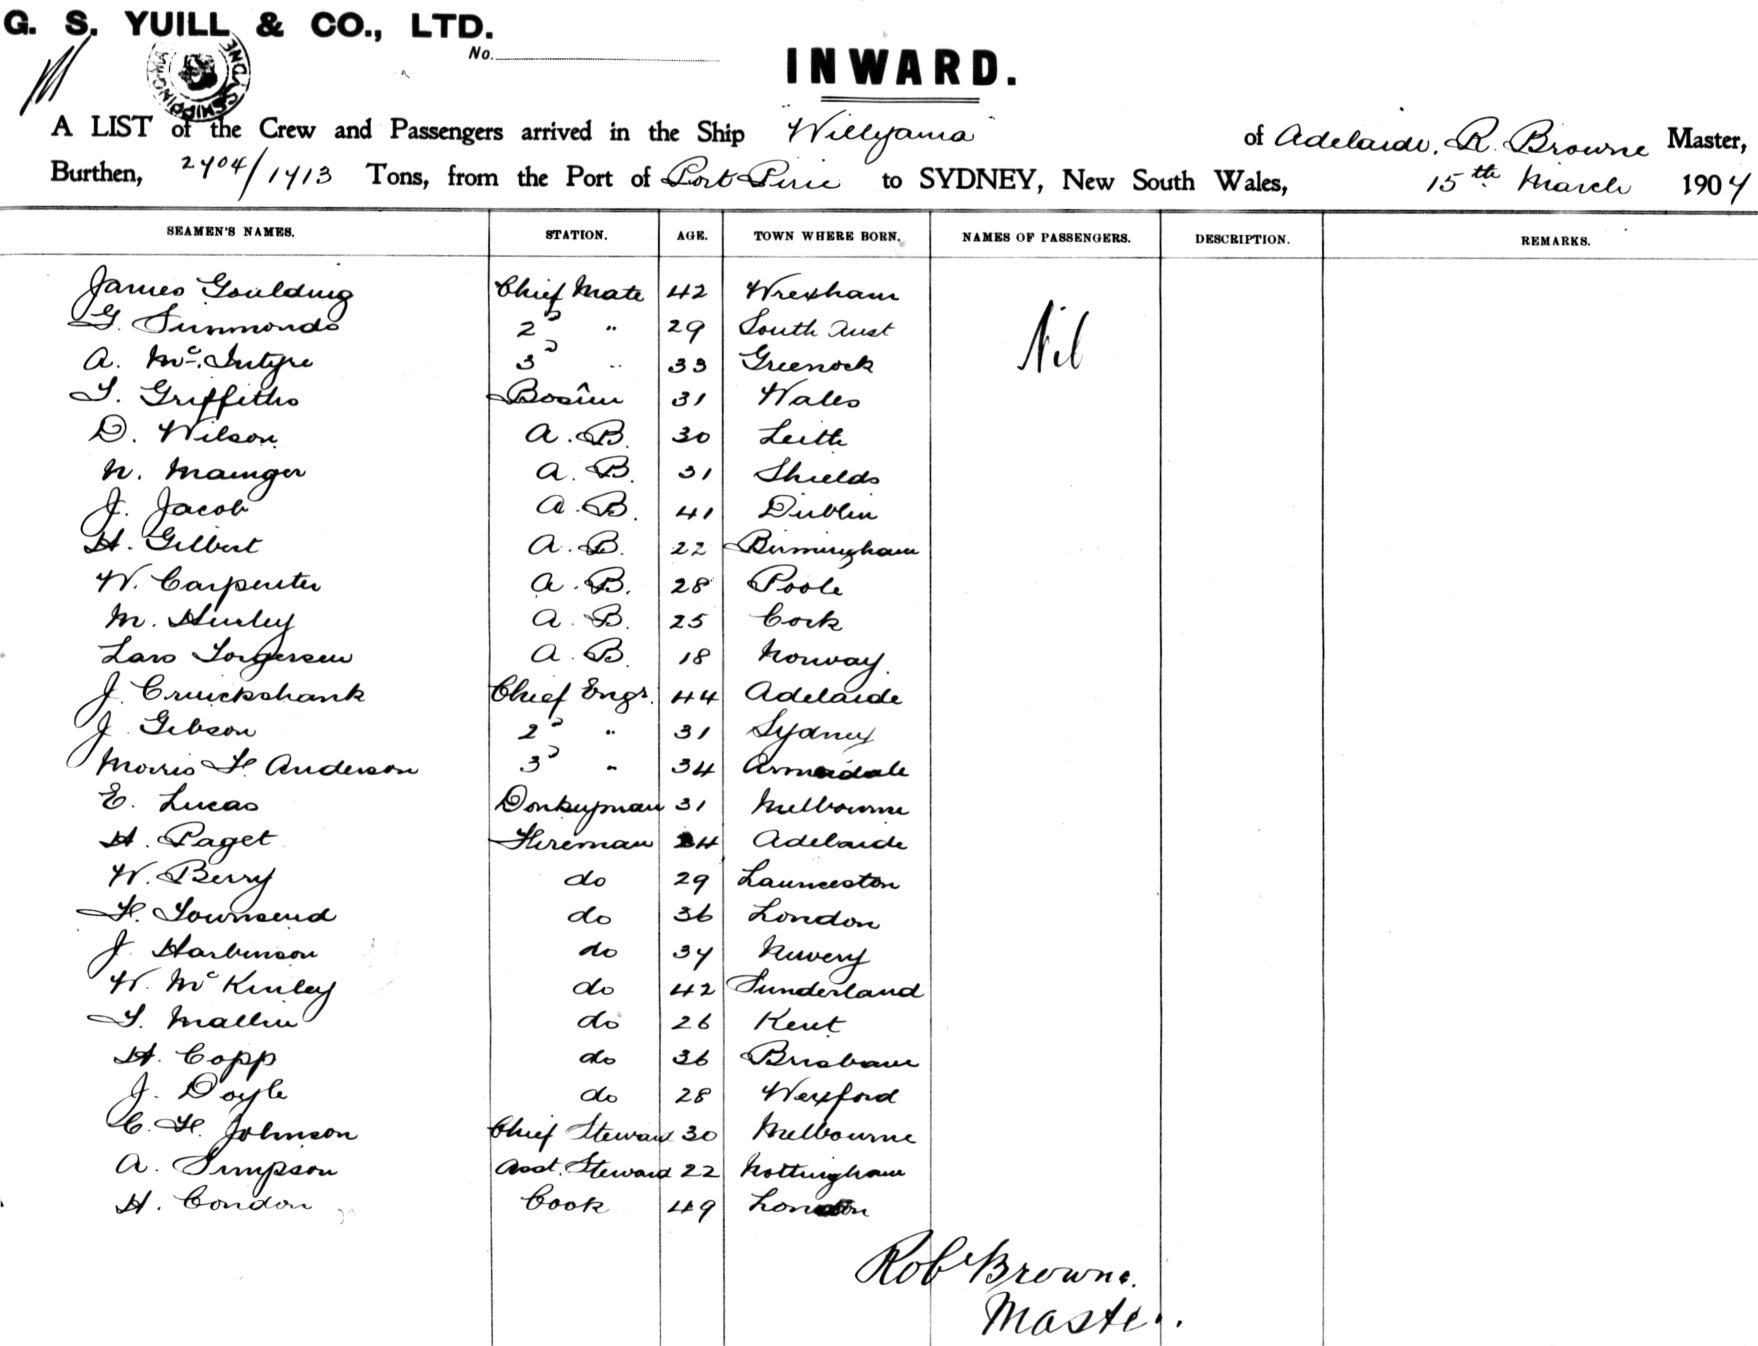 G. S. YUILL & CO., LTD.
No.
INWARD.
A LIST of the Crew and Passengers arrived in the Ship "Willyama" of Adelaide, R. Browne Master,
Burthen, 2704/1713 Tons, from the Port of Port Pirie to SYDNEY, New South Wales, 15th March 1904
SEAMEN'S NAMES. STATION. AGE. TOWN WHERE BORN. NAMES OF PASSENGERS. DESCRIPTION. REMARKS.
James Goulding Chief Mate 42 Wrexham Nil
G. Simmonds 2d " 29 South Aust
A. McIntyre 3d " 33 Greenock
T. Griffiths Bosun 31 Wales
D. Wilson A.B. 30 Leith
N. Mainger A.B. 31 Shields
J. Jacob A.B. 41 Dublin
H. Gilbert A.B. 22 Birmingham
W. Carpenter A.B. 28 Poole
M. Hurley A.B. 25 Cork
Lars Torgersen A.B. 18 Norway
J. Cruickshank Chief Engr. 44 Adelaide
J. Gibson 2d " 31 Sydney
Morris F. Anderson 3d " 34 Armadale
E. Lucas Donkeyman 31 Melbourne
H. Paget Fireman 24 Adelaide
W. Berry do 29 Launceston
F. Townsend do 36 London
J. Harbinson do 37 Newery
W. McKinley do 42 Sunderland
T. Mallin do 26 Kent
H. Copp do 36 Brisbane
J. Doyle do 28 Wexford
C. F. Johnson Chief Steward 30 Melbourne
A. Simpson Asst. Steward 22 Nottingham
H. Condon Cook 49 London
Rob Browne.
Master.